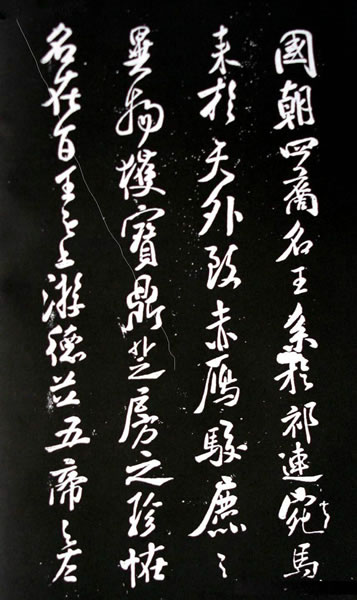 國朝四裔名王系於祁連宛馬
来於天外致赤鴈駮麃之
異物獲寶鼎芝房之珍恠
名在百王之上游德五帝之左